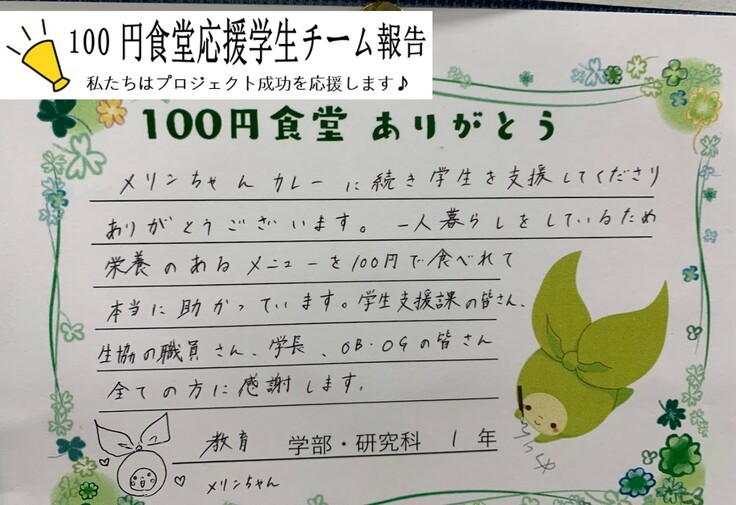 100円食堂応援学生チーム報告
私たちはプロジェクト成功を応援します♪
100円食堂 ありがとう
メリンちゃんカレーに続き学生を支援してくださり
ありがとうございます。一人暮らしをしているため
栄養のあるメニューを100円で食べれて
本当に助かっています。学生支援課の皆さん、
生協の職員さん、学長、OB・OGの皆さん
全ての方に感謝します。
教育 学部・研究科 1年
メリンちゃん